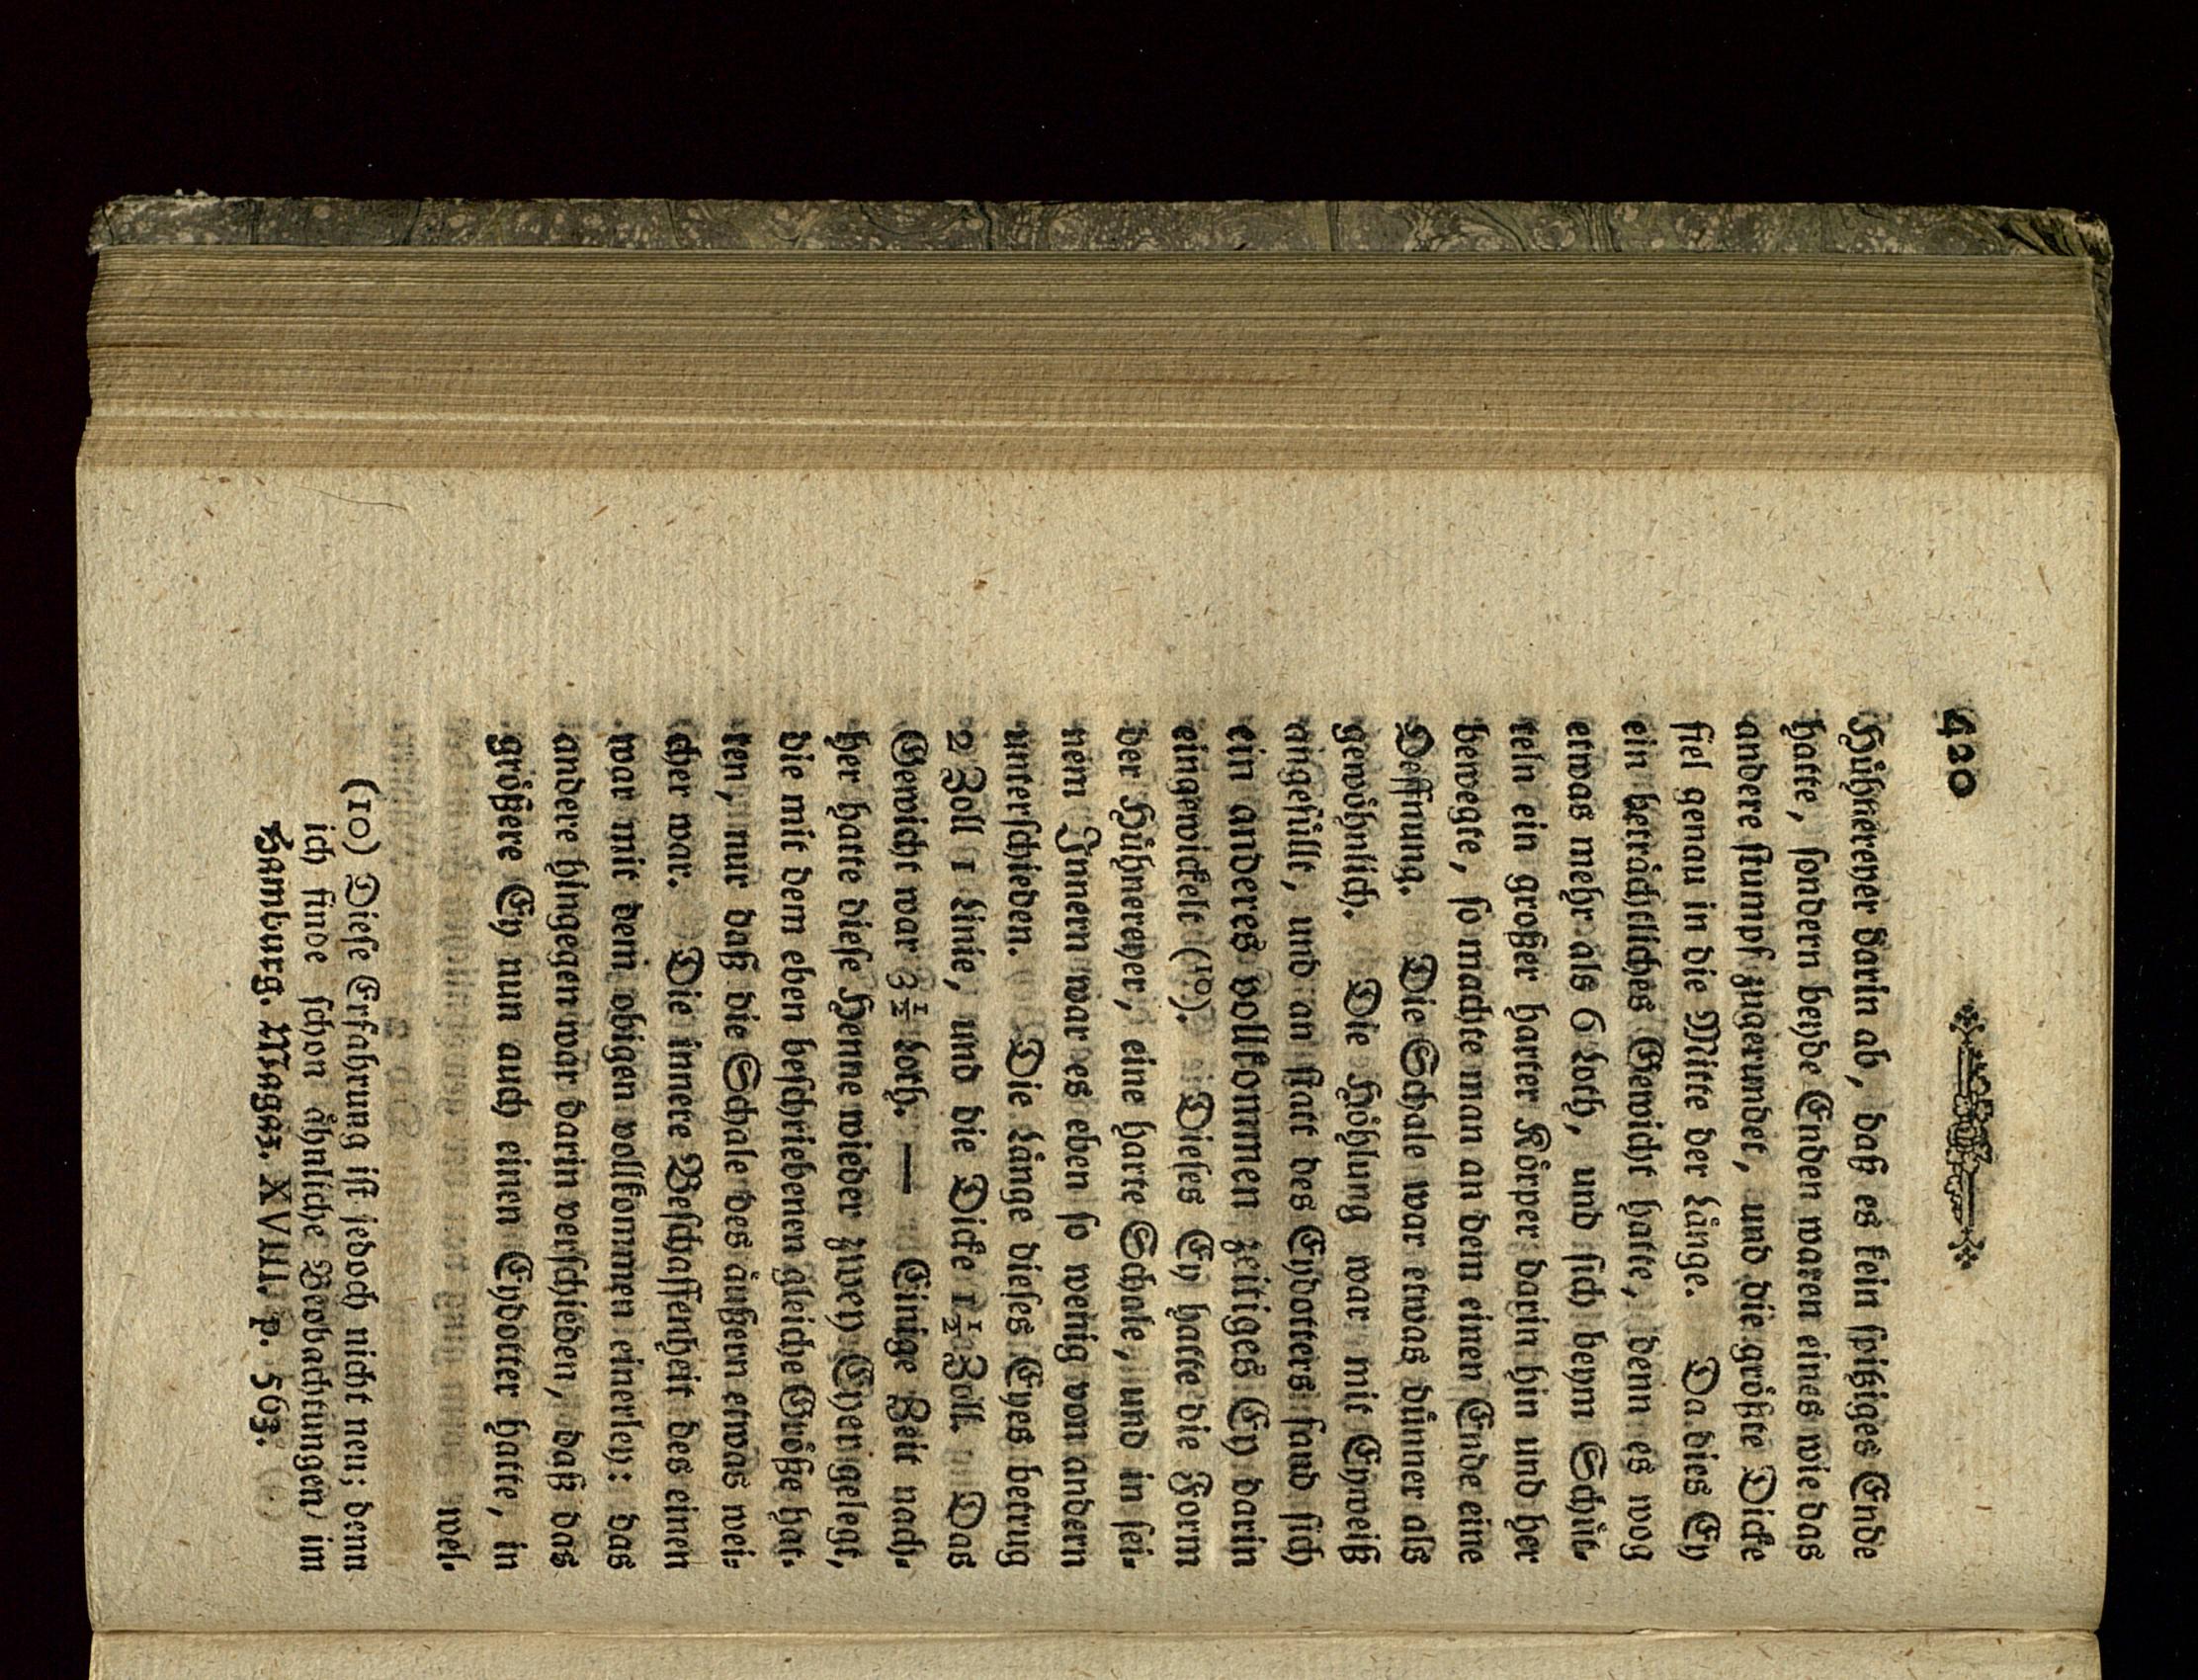 420
Hühnereyer darin ab, daß es kein spitziges Ende
hatte, sondern beyde Enden waren eines wie das
andere stumpf zugerundet, und die größte Dicke
fiel genau in die Mitte der Länge. Da dies Ey
ein beträchtliches Gewicht hatte, denn es wog
etwas mehr als 6 Loth, und sich beym Schüt-
teln ein großer harter Körper darin hin und her
bewegte, so machte man an dem einen Ende eine
Oeffnung. Die Schale war etwas dünner als
gewöhnlich. Die Höhlung war mit Eyweiß
angefüllt, und an statt des Eydotters fand sich
ein anderes vollkommen zeitiges Ey darin
eingewickelt (10). Dieses Ey hatte die Form
der Hühnereyer, eine harte Schale, und in sei-
nem Innern war es eben so wenig von andern
unterschieden. Die Länge dieses Eyes betrug
2 Zoll 1 Linie, und die Dicke 1½ Zoll. Das
Gewicht war 3½ Loth. — Einige Zeit nach-
her hatte diese Henne wieder zwey Eyer gelegt,
die mit dem eben beschriebenen gleiche Größe hat-
ten, nur daß die Schale des äußern etwas wei-
cher war. Die innere Beschaffenheit des einen
war mit dem obigen vollkommen einerley: das
andere hingegen war darin verschieden, daß das
größere Ey nun auch einen Eydotter hatte, in
wel-
(10) Diese Erfahrung ist jedoch nicht neu; denn
ich finde schon ähnliche Beobachtungen im
Hamburg. Magaz. XVIII. p. 563.